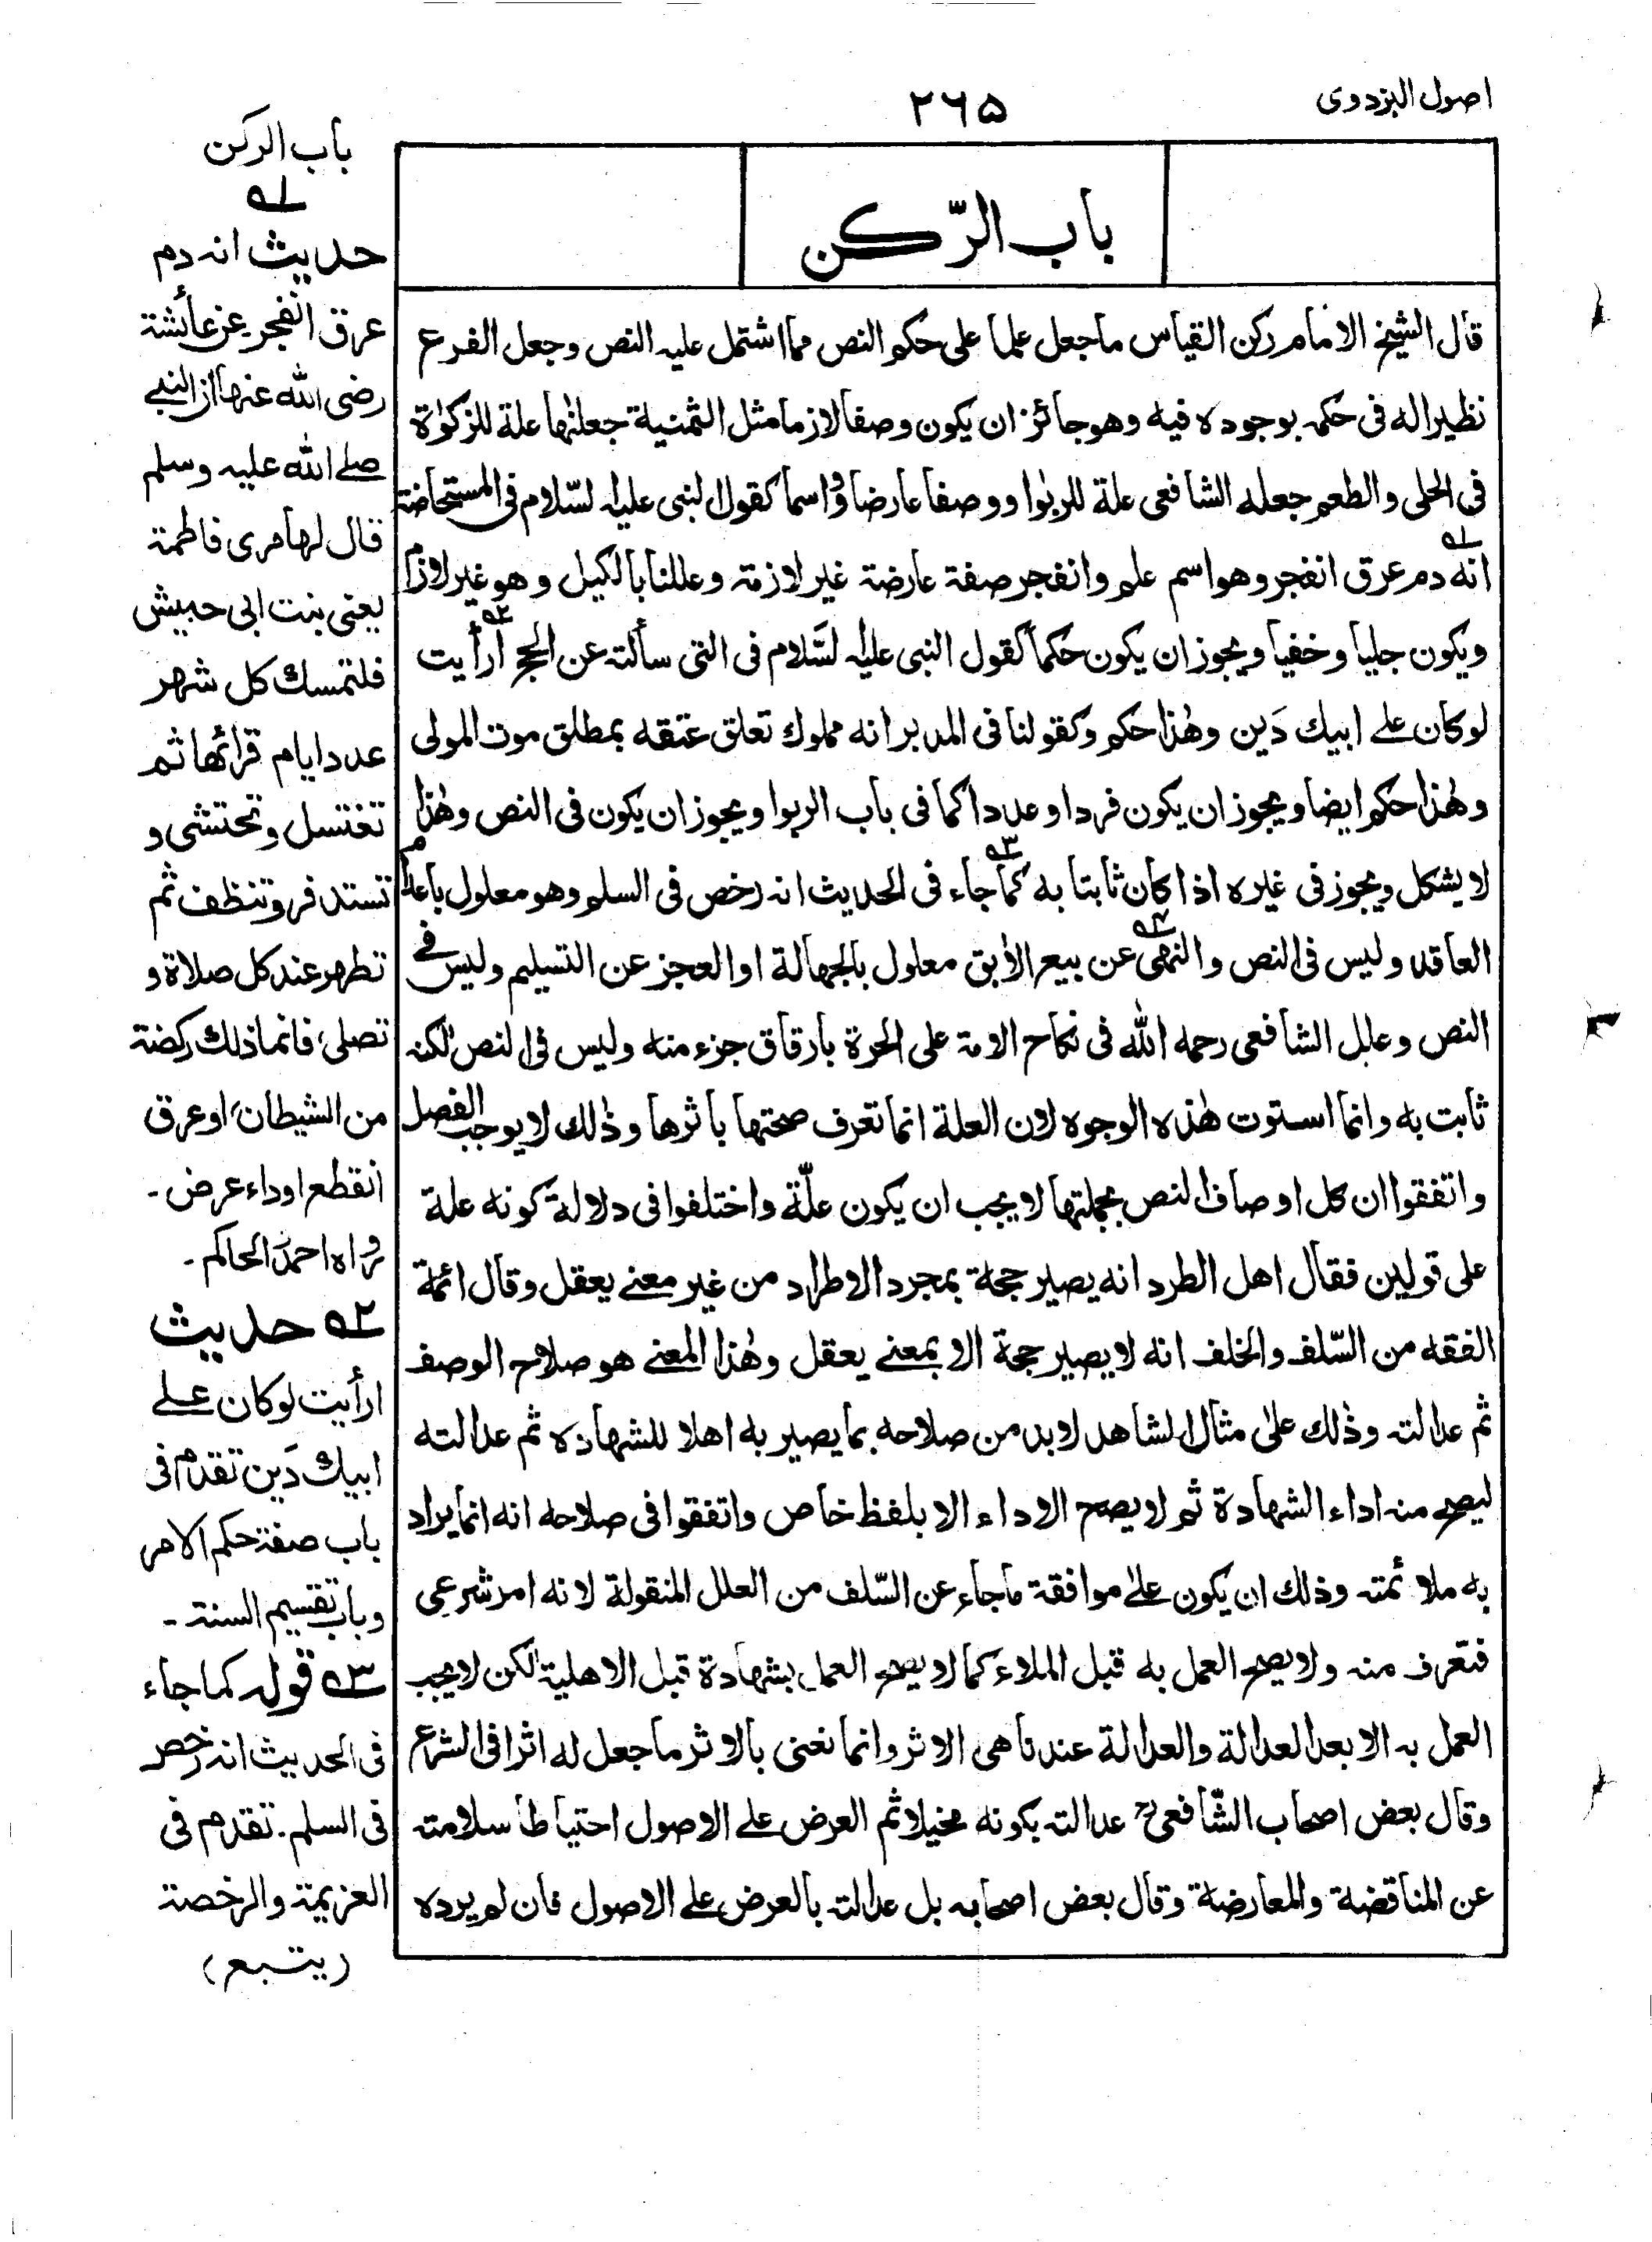 اصول البزدوى
٢٦٥
باب الرّكن
قال الشيخ الامام ركن القياس ماجعل علما على حكم النص مما اشتمل عليه النص وجعل الفرع
نظيرا له فى حكمه بوجوده فيه وهو جائز ان يكون وصفا لازما مثل الثمنية جعلناها علة للزكوٰة
فى الحلى والطعم جعله الشافعى علة للربٰوا ووصفا عارضا واسما كقول النبى عليه السّلام فى المستحاضة
انه دم عرق انفجر وهو اسم علم وانفجر صفة عارضة غير لازمة وعللنا بالكيل وهو غير لازم
ويكون جليا وخفيا ويجوز ان يكون حكما كقول النبى عليه السَّلام فى التى سألته عن الحج أرأيت
لوكان على ابيك دَين وهٰذا حكم وكقولنا فى المدبر انه مملوك تعلق عتقه بمطلق موت المولى
وهٰذا حكم ايضا ويجوز ان يكون فردا وعددا كما فى باب الربوا ويجوز ان يكون فى النص وهٰذا
لا يشكل ويجوز فى غيره اذا كان ثابتا به كما جاء فى الحديث انه رخص فى السلم وهو معلول باعدام
العاقد وليس فى النص والنهى عن بيع الأبق معلول بالجهالة او العجز عن التسليم وليس فى
النص وعلل الشافعى رحمه الله فى نكاح الامة على الحرة بارقاق جزء منه وليس فى النص لكنه
ثابت به وانما استوت هٰذه الوجوه لان العلة انما تعرف صحتها باثرها وذٰلك لا يوجب الفصل
واتفقوا ان كل اوصاف النص بجملتها لا يجب ان يكون علّة واختلفوا فى دلالة كونه علة
على قولين فقال اهل الطرد انه يصير حجة بمجرد الاطراد من غير معنى يعقل وقال ائمة
الفقه من السّلف والخلف انه لا يصير حجة الا بمعنى يعقل وهٰذا المعنى هو صلاح الوصف
ثم عدالته وذٰلك علىٰ مثال الشاهد لا بد من صلاحه بما يصير به اهلا للشهاده ثم عدالته
ليصح منه اداء الشهادة ثم لا يصح الاداء الا بلفظ خاص واتفقوا فى صلاحه انه انما يراد
به ملائمته وذلك ان يكون علىٰ موافقة ماجاء عن السّلف من العلل المنقولة لانه امر شرعى
فتعرف منه ولا يصح العمل به قبل الملاء كما لا يصح العمل بشهادة قبل الاهلية لكن لا يجب
العمل به الا بعد العدالة والعدالة عندنا هى الاثر وانما نعنى بالاثر ما جعل له اثرا فى الشرع
وقال بعض اصحاب الشّافعىؒ عدالته بكونه مخيلا ثم العرض على الاصول احتياطا سلامته
عن المناقضة والمعارضة وقال بعض اصحابه بل عدالته بالعرض على الاصول فان لم يرده
باب الركن
١ه
حديث انه دم
عرق انفجر عن عائشة
رضى الله عنها ان النبى
صلى الله عليه وسلم
قال لها مرى فاطمة
يعنى بنت ابى حبيش
فلتمسك كل شهر
عدد ايام قرائها ثم
تغتسل وتحتشى و
تستذفر وتنظف ثم
تطهر عند كل صلاة و
تصلى، فانما ذلك ركضة
من الشيطان، او عرق
انقطع او داء عرض -
رواه احمد والحاكم -
٢ه حديث
ارأيت لوكان على
ابيك دَين تقدم فى
باب صفة حكم الامر
وباب تقسيم السنة -
٣ه قوله كما جاء
فى الحديث انه رخص
فى السلم. تقدم فى
العزيمة والرخصة
(يتبع)